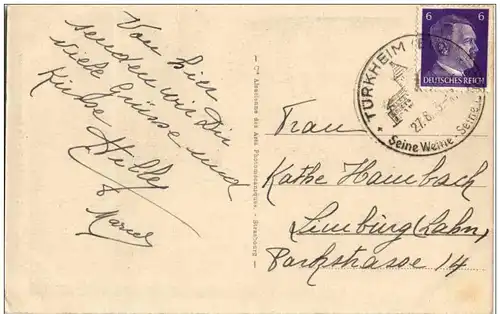 Von hier
senden wir Dir
viele Grüsse und
Küsse Hilly
& Marcel
Cie Alsacienne des Arts Photomécaniques. - Strasbourg
6 6
DEUTSCHES REICH
TÜRKHEIM
27.8.
Seine Weine Seine
Frau
Kathe Hambach
Limburg (Lahn)
Parkstrasse 14